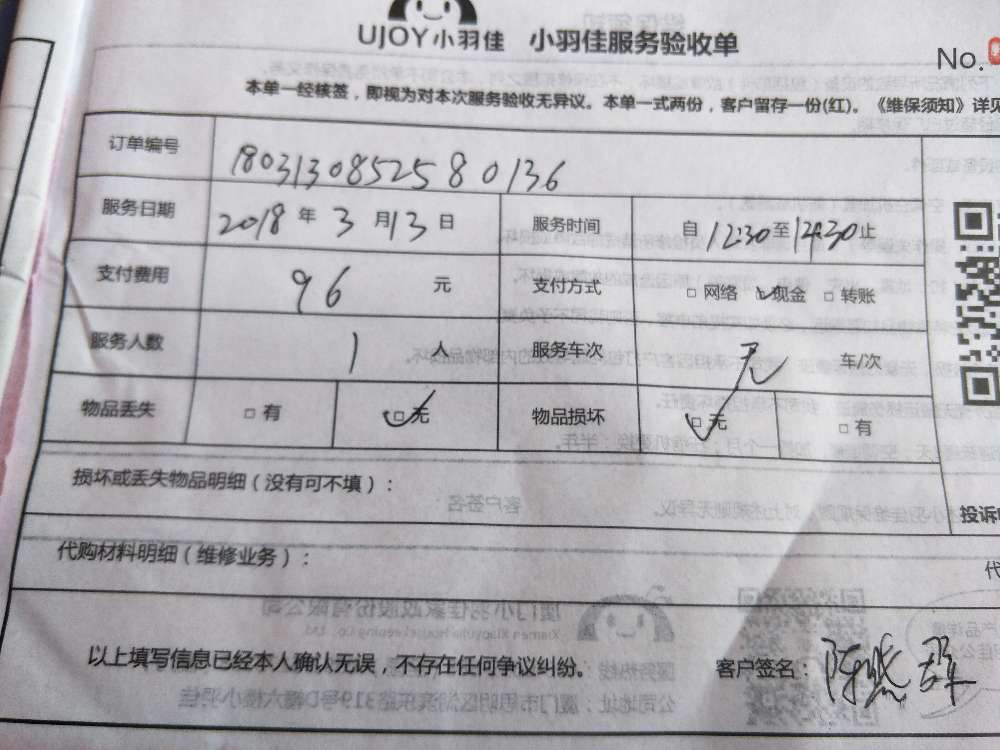 UJOY小羽佳 小羽佳服务验收单
No.
本单一经核签，即视为对本次服务验收无异议。本单一式两份，客户留存一份(红)。《维保须知》详见
订单编号 180313085258 0136
服务日期 2018 年 3 月 13 日 服务时间 自 12:30 至 14:30 止
支付费用 96 元 支付方式 □ 网络 ✓ 现金 □ 转账
服务人数 1 人 服务车次 无 车/次
物品丢失 □ 有 □ 无 物品损坏 □ 无 □ 有
损坏或丢失物品明细（没有可不填）：
投诉
代购材料明细（维修业务）：
代
以上填写信息已经本人确认无误，不存在任何争议纠纷。 客户签名：陈 群